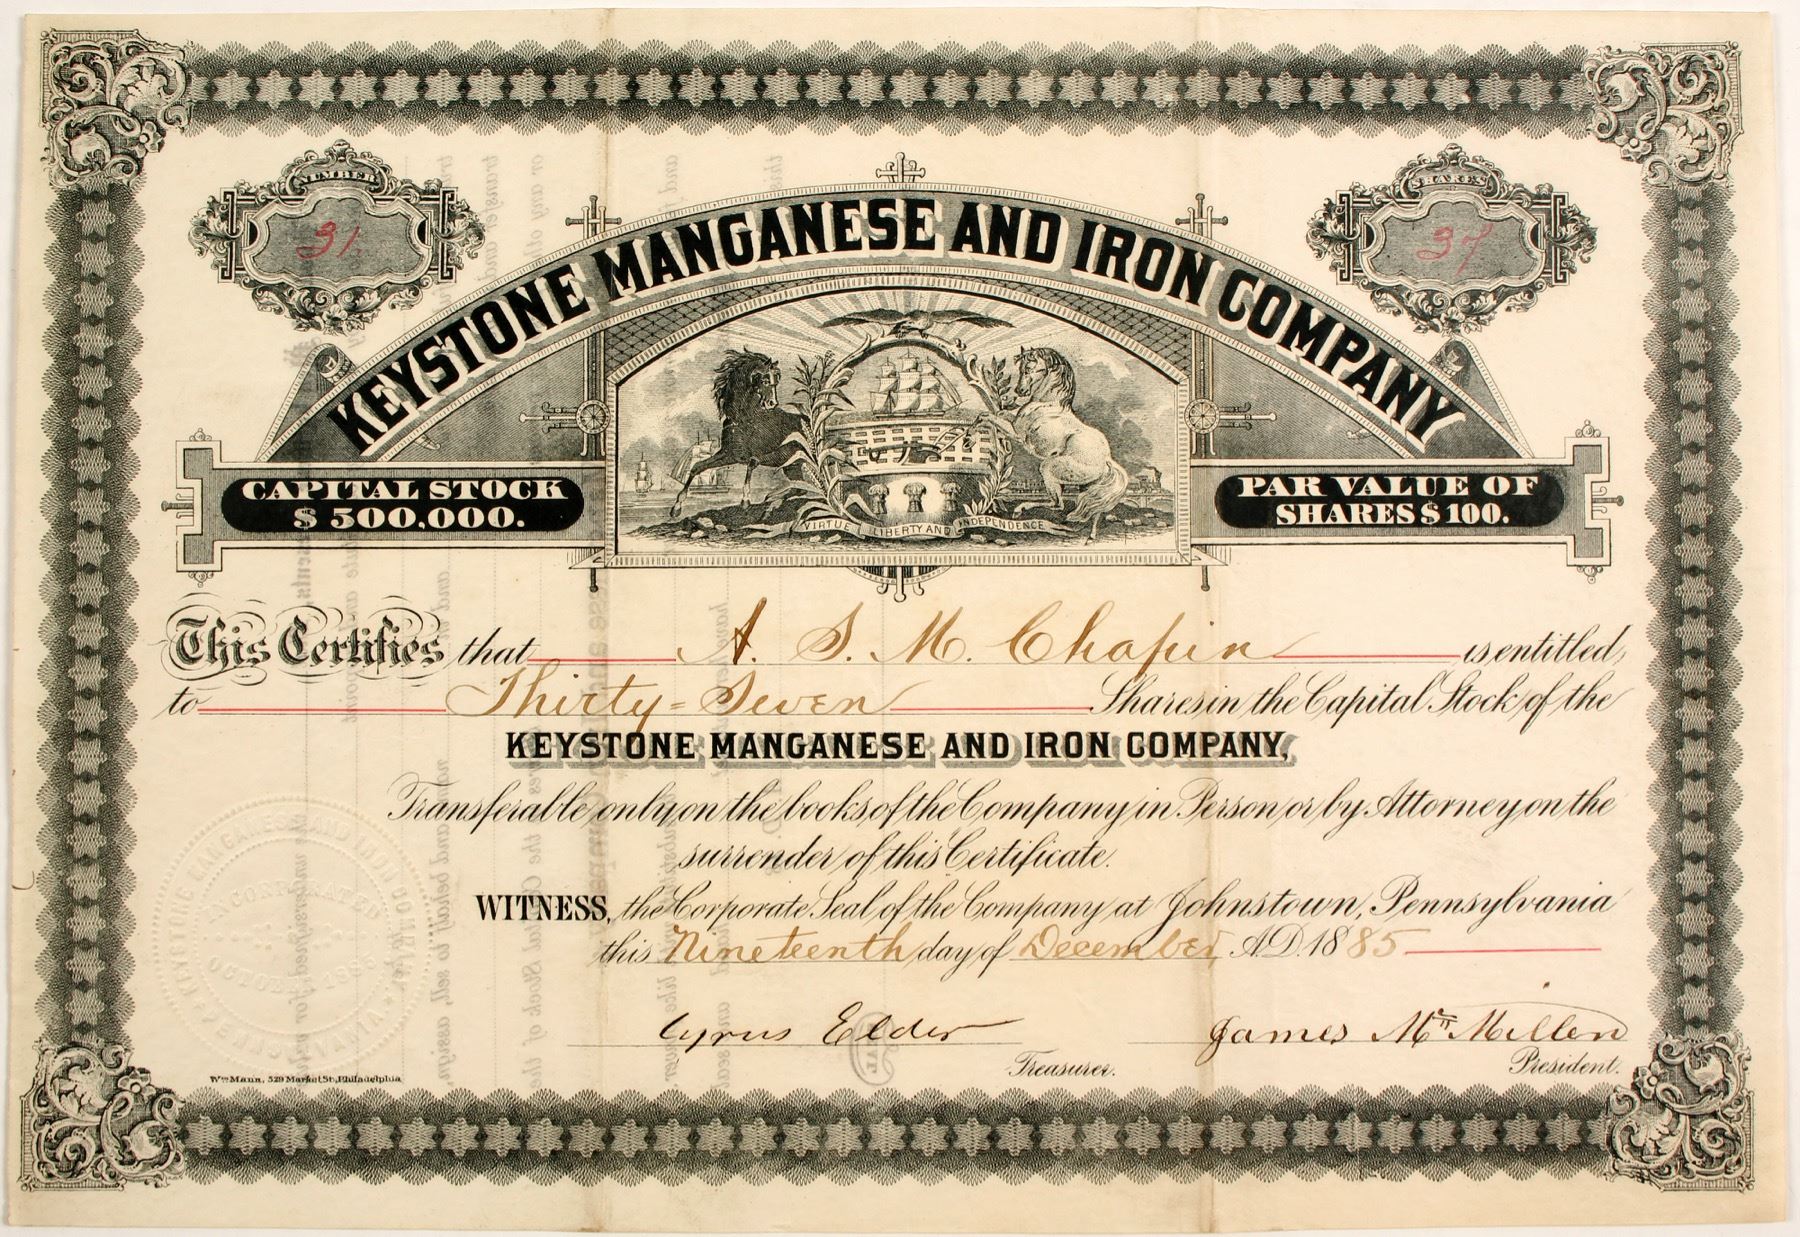 NUMBER
31.
SHARES
37
KEYSTONE MANGANESE AND IRON COMPANY
CAPITAL STOCK
$500,000.
PAR VALUE OF
SHARES $100.
VIRTUE LIBERTY AND INDEPENDENCE
This Certifies that A. S. M. Chapin is entitled
to Thirty=Seven Shares in the Capital Stock of the
KEYSTONE MANGANESE AND IRON COMPANY,
Transferable only on the books of the Company in Person or by Attorney on the
surrender of this Certificate.
WITNESS, the Corporate Seal of the Company at Johnstown, Pennsylvania
this Nineteenth day of December A.D. 1885
KEYSTONE MANGANESE AND IRON COMPANY
INCORPORATED
OCTOBER 1885
PENNSYLVANIA
Cyrus Elder
Treasurer.
James McMillen
President.
Wm Mann, 529 Market St, Philadelphia